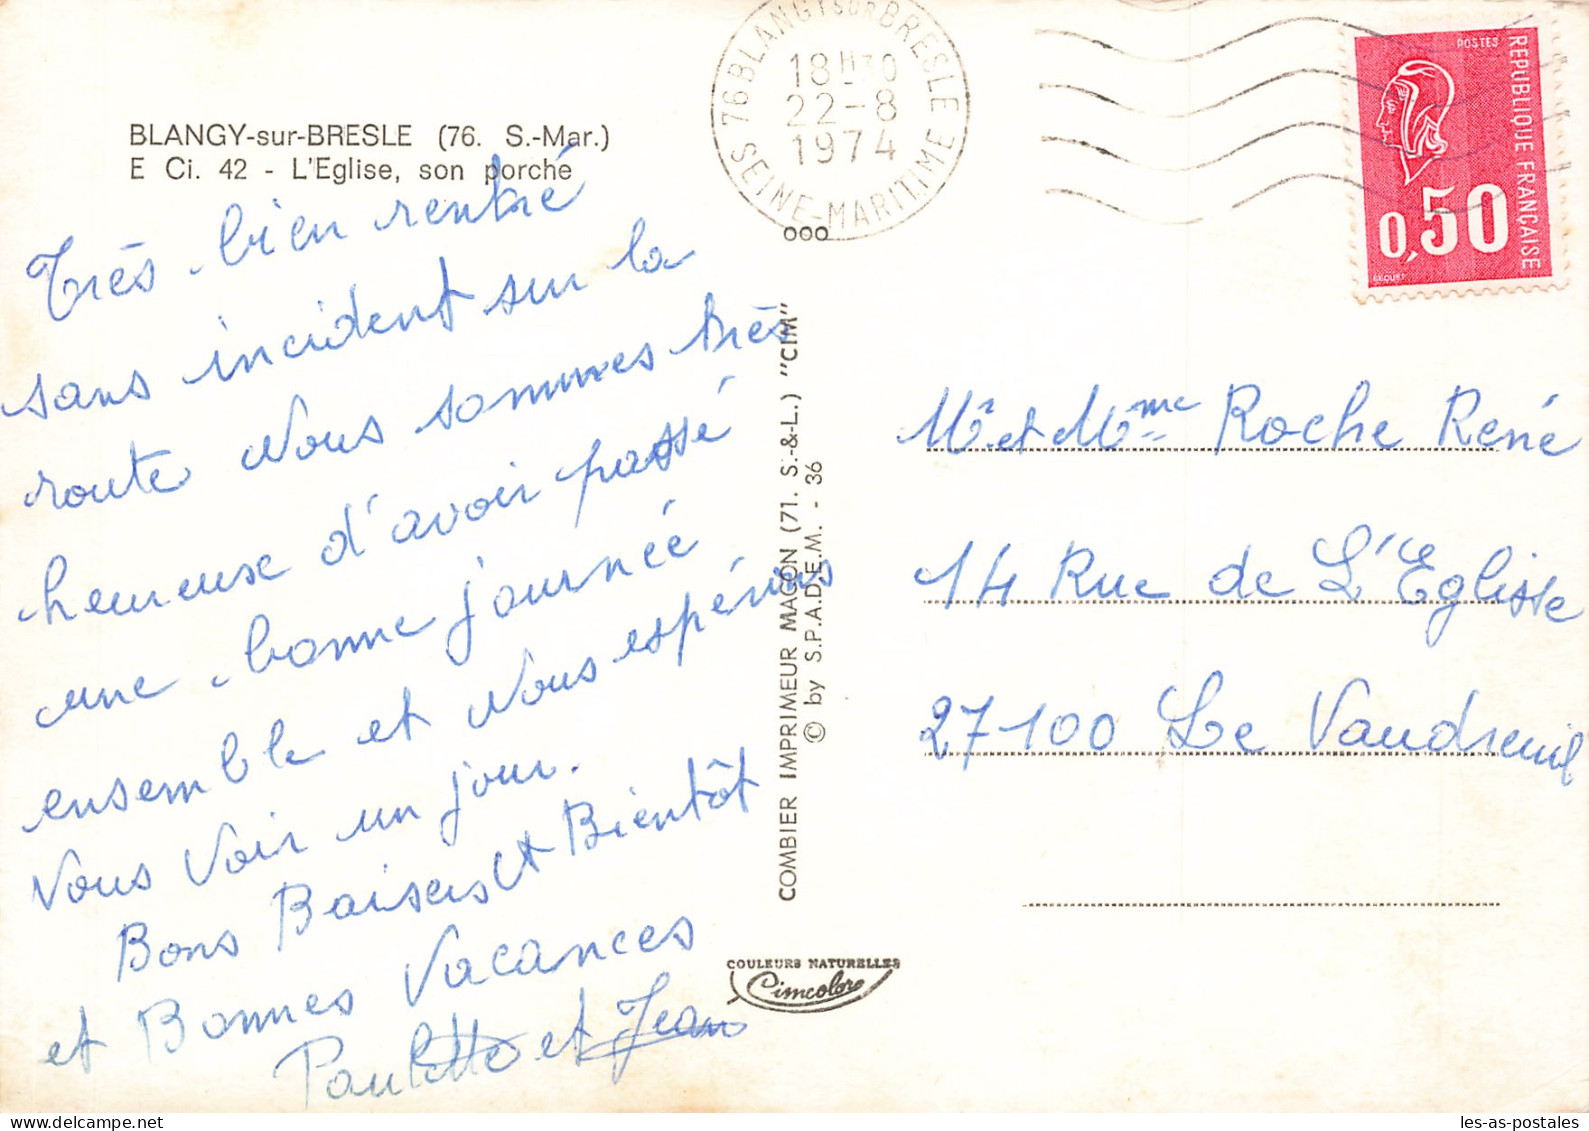 BLANGY-sur-BRESLE (76. S.-Mar.)
E Ci. 42 - L'Eglise, son porche
Très bien rentré
sans incident sur la
route Nous sommes très
heureuse d'avoir passé
une bonne journée
ensemble et Nous espérions
Vous Voir un jour.
Bons Baisers et Bientôt
et Bonnes Vacances
Paulette et Jean
76 BLANGY SUR BRESLE
18H30
22-8
1974
SEINE-MARITIME
000
COMBIER IMPRIMEUR MACON (71. S.-&-L.) "CIM"
© by S.P.A.D.E.M. - 36
COULEURS NATURELLES
Cimcolor
POSTES
REPUBLIQUE FRANÇAISE
0,50
BEQUET
Mr et Mme Roche René
14 Rue de L'Eglisse
27100 Le Vaudreuil
les-as-postales